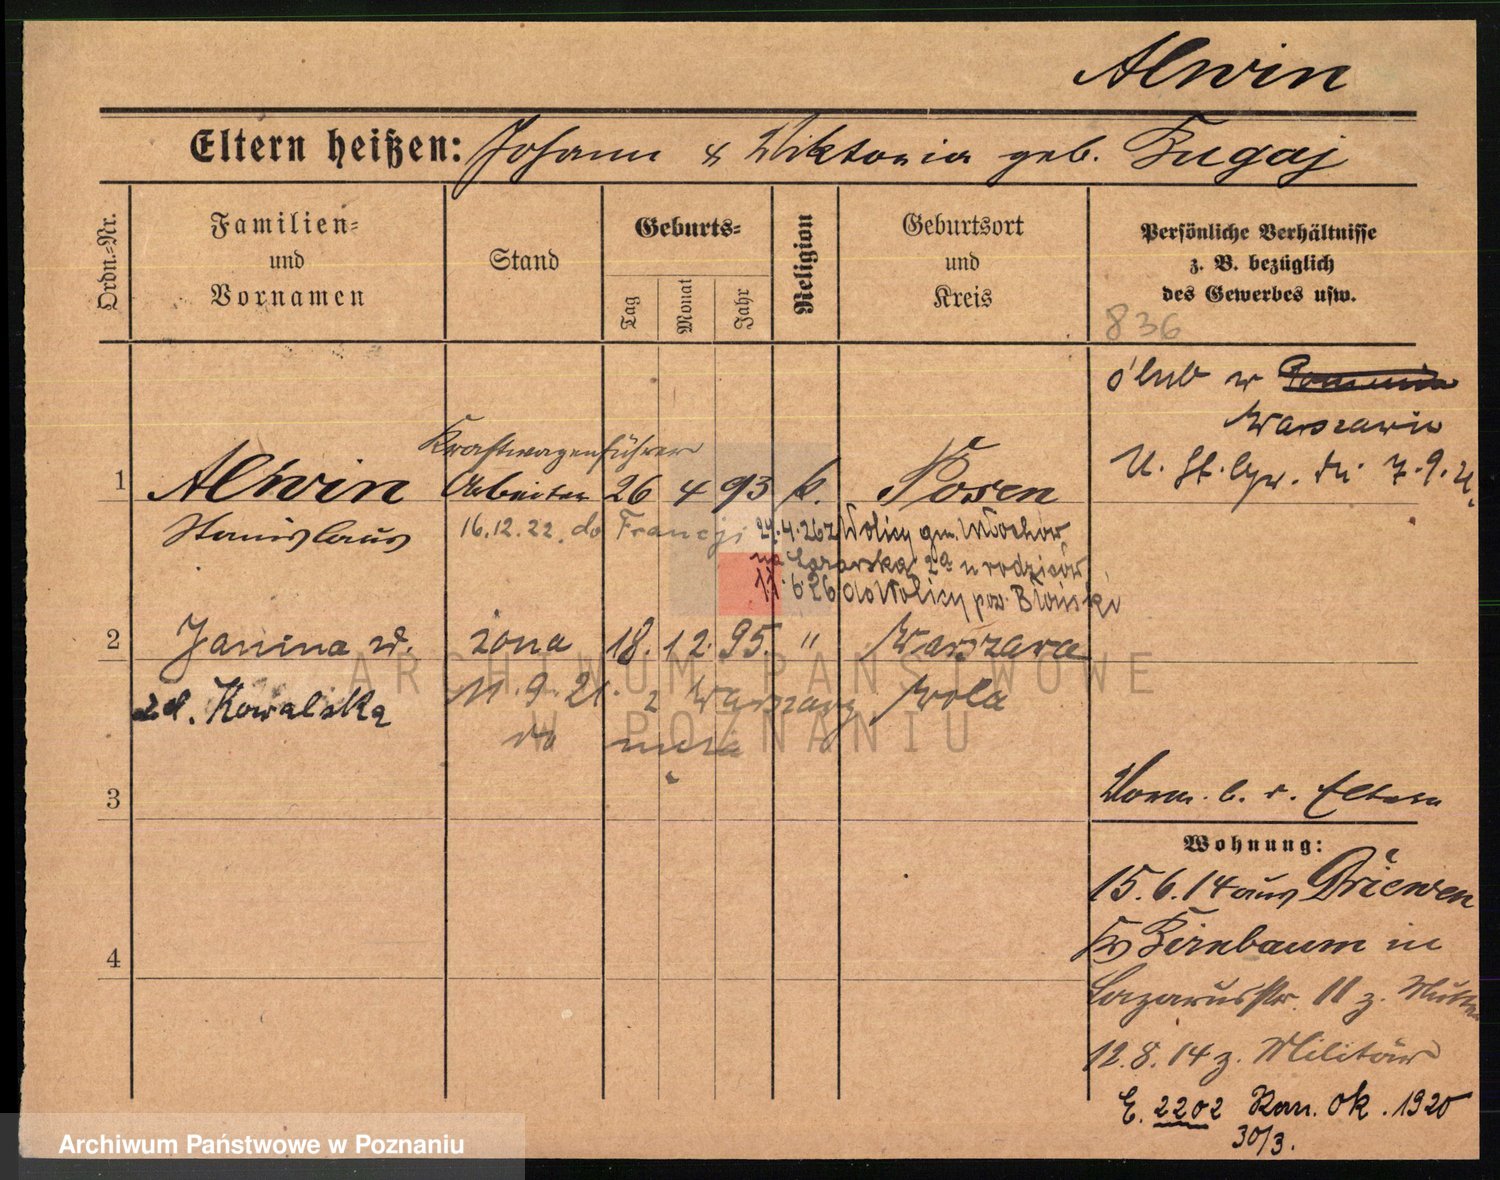 Alwin
Eltern heißen: Johann & Viktoria geb. Bugaj
Ordn.-Nr.
Familien-
und
Vornamen
Stand
Geburts-
Tag
Monat
Jahr
Religion
Geburtsort
und
Kreis
Persönliche Verhältnisse
z. B. bezüglich
des Gewerbes usw.
836
ślub w
Warszawie
7.9.21.
Kraftwagenführer
1 Alwin Arbeiter 26 4 93 k. Posen
Stanislaus 16.12.22. do Francji 29.4.26 z Wolicy gm. Młochów
na Łazarską 2a u rodziców
11.6.26 do Wolicy pow. Błoński
2 Janina ż. żona 18. 12. 95. " Warszawa
zd. Kowalska 11.9.21. z Warszawy Wola
do męża
3
Vorm. b. d. Eltern
Wohnung:
15.6.14 aus Driewen
Kr Birnbaum in
4
Lazarusstr. 11 z. Mutter
12.8.14 z. Militär
E. 2202 Kan. ok. 1920
30/3.
ARCHIWUM PAŃSTWOWE
W POZNANIU
Archiwum Państwowe w Poznaniu